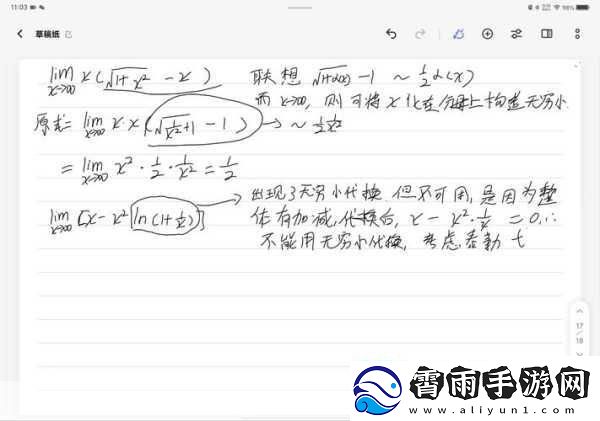 11:03
98%
草稿纸
lim x→∞ x(√1+x² − x) 联想 √1+α(x) −1 ~ ½α(x)
而 x→∞, 则可将 x 化在分母上构造无穷小
原式= lim x→∞ x·x(√1/x²+1 −1) → ~ ½·1/x²
= lim x→∞ x²·½·1/x² = ½
lim x→∞ [x − x² ln(1+1/x)] → 出现了无穷小代换 但不可用, 是因为整
体有加减, 代换后, x − x²·1/x = 0, ∴
不能用无穷小代换, 考虑泰勒 t
17
18
霄雨手游网
www.aliyun1.com